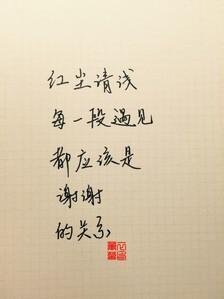 红尘清浅
每一段遇见
都应该是
谢谢
的关系